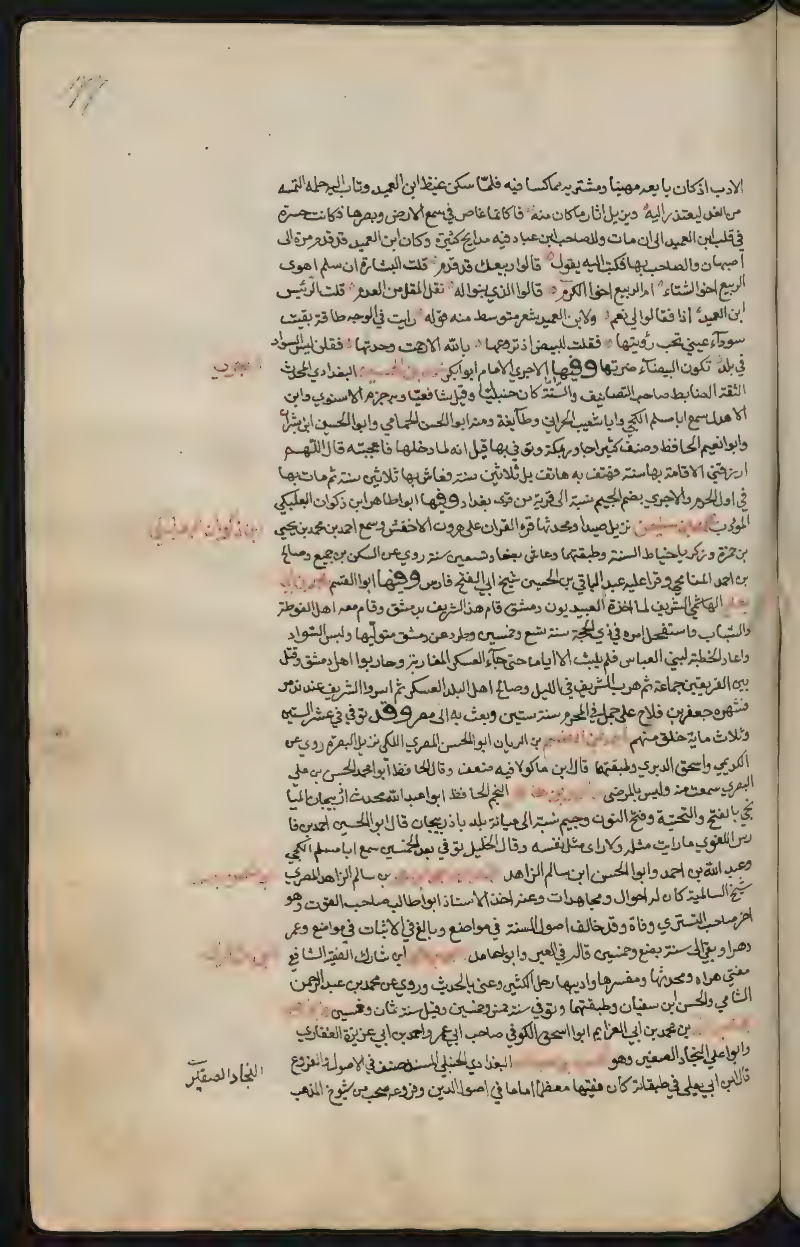 الادب اذ كان بايعه مهينا ومشتريه مماكسا فيه فلما سكن غيظ ابن العميد وثاب اليه حلمه التمسه
من الغد ليعتذر اليه ويزيل اثار ما كان منه فاكانما غاص في سمع الارض وبصرها فكانت حسرة
في قلب ابن العميد الى ان مات وللصاحب ابن عباد فيه مدايح كثيرة وكان ابن العميد قد قدم مرة الى
اصبهان والصاحب بها فكتب اليه يقول قالوا ربيعك قد قدم قلت البشارة ان سلم اهوى
الربيع اخو الشتاء ام الربيع اخو الكرم قالوا الذي بنواله نغل المقل من العدم قلت الرئيس
ابن العميد اذا فقالوا لي نعم ولابن العميد شعر متوسط منه قوله رايت في الوجه طاقة بقيت
سوداء عيني تحب رؤيتها فقلت للبيض اذ تروعها بالله الا رحمت وحدتها فقل لبث السواد
في بلد تكون البيضاء ضرتها وفيها الاجري الامام ابو بكر محمد بن الحسين البغدادي المحدث
الثقة الضابط صاحب التصانيف والسنة كان حنبليا وقيل شافعيا وبه جزم الاسنوي وابن
الاهدل سمع ابا مسلم الكجي وابا شعيب الحراني وطائفة ومنه ابو الحسن الحمامي وابو الحسين ابن بشران
وابو نعيم الحافظ وصنف كثيرا جاور بمكة وتوفي بها قيل انه لما دخلها فاعجبته قال اللهم
ارزقني الاقامة بها سنة فهتف به هاتف بل ثلاثين سنة فعاش بها ثلاثين سنة ثم مات بها
في اول المحرم والاجري بضم الجيم نسبة الى قرية من قرى بغداد وفيها ابو طاهر ابن ذكوان البعلبكي
المؤدب محمد بن سليمن نزيل صيدا ومحدثها قرء القران على هرون الاخفش وسمع احمد بن محمد بن يحيى
بن حمزة وزكريا خياط السنة وطبقتهما وعاش بضعا وتسعين سنة روى عنه السكن بن جميع وصالح
بن احمد الميانجي وقرا عليه عبد الباقي بن الحسين شيخ ابي الفتح فارس وفيها ابو القسم
الهاشمي الشريف لما اخذة العبيديون دمشق قام هذا الشريف بدمشق وقام معه اهل الغوطة
والشباب واستفحل امره في ذي الحجة سنة تسع وخمسين وطرد عن دمشق متوليها ولبس السواد
واعاد الخطبة لبني العباس فلم يلبث الا اياما حتى جآء العسكر المغاربة وحاربوا اهل دمشق وقتل
بين الفريقين جماعة ثم هرب الشريف في الليل وصالح اهل البلد العسكر ثم اسروا الشريف عند تدمر
فشهره جعفر بن فلاح على جمل في المحرم سنة ستين وبعث به الى مصر وقد توفي في عشر الستين
وثلاث ماية خلق منهم احمد بن القسم بن الريان ابو الحسن المصري اللكي نزيل البصرة روى عن
الكديمي واسحق الدبري وطبقتهما قال ابن ماكولا فيه ضعف وقال الحافظ ابو محمد الحسن بن علي
البصري سمعت منه وليس بالمرضي النجم الحافظ ابو عبد الله محدث اذربيجان الميا
نجي بالفتح والتحتية وفتح النون وجيم نسبة الى ميانة بلد باذربيجان قال ابو الحسين احمد بن فا
رس اللغوي ما رايت مثله ولا راى مثل نفسه وقال الخليلي توفي بعد الخمسين سمع ابا مسلم الكجي
وعبد الله بن احمد وابو الحسن ابن سالم الزاهد بن سالم الزاهد البصري
شيخ السالمية كان له احوال ومجاهدات وعنه اخذ الاستاذ ابو طالب صاحب القوت وهو
اخر صاحب التستري وفاة وقد خالف اصول السنة في مواضع وبالغ في الاثبات في مواضع وعمر
دهرا وبقى الى سنة بضع وخمسين قاله في العبر وابو حامد ابن شارك الفقيه الشافعي
مفتي هراه ومحدثها ومفسرها واديبها رحل الكثير وعنى بالحديث وروى عن محمد بن عبد الرحمن
الشامي والحسن ابن سفيان وطبقتهما وتوفي سنة خمس وخمسين وقيل سنة ثمان وخمسين
بن محمد بن ابي العزايم ابو اسحق الكوفي صاحب ابي عمرو احمد بن ابي عزيزة الغفاري
وابو علي النجاد الصغير وهو البغدادي الحنبلي المسند صنف في الاصول والفروع
قال ابن ابي يعلى في طبقاته كان فقيها معظما اماما في اصول الدين وفروعه صحب من شيوخ المذهب
النجاد الصغير